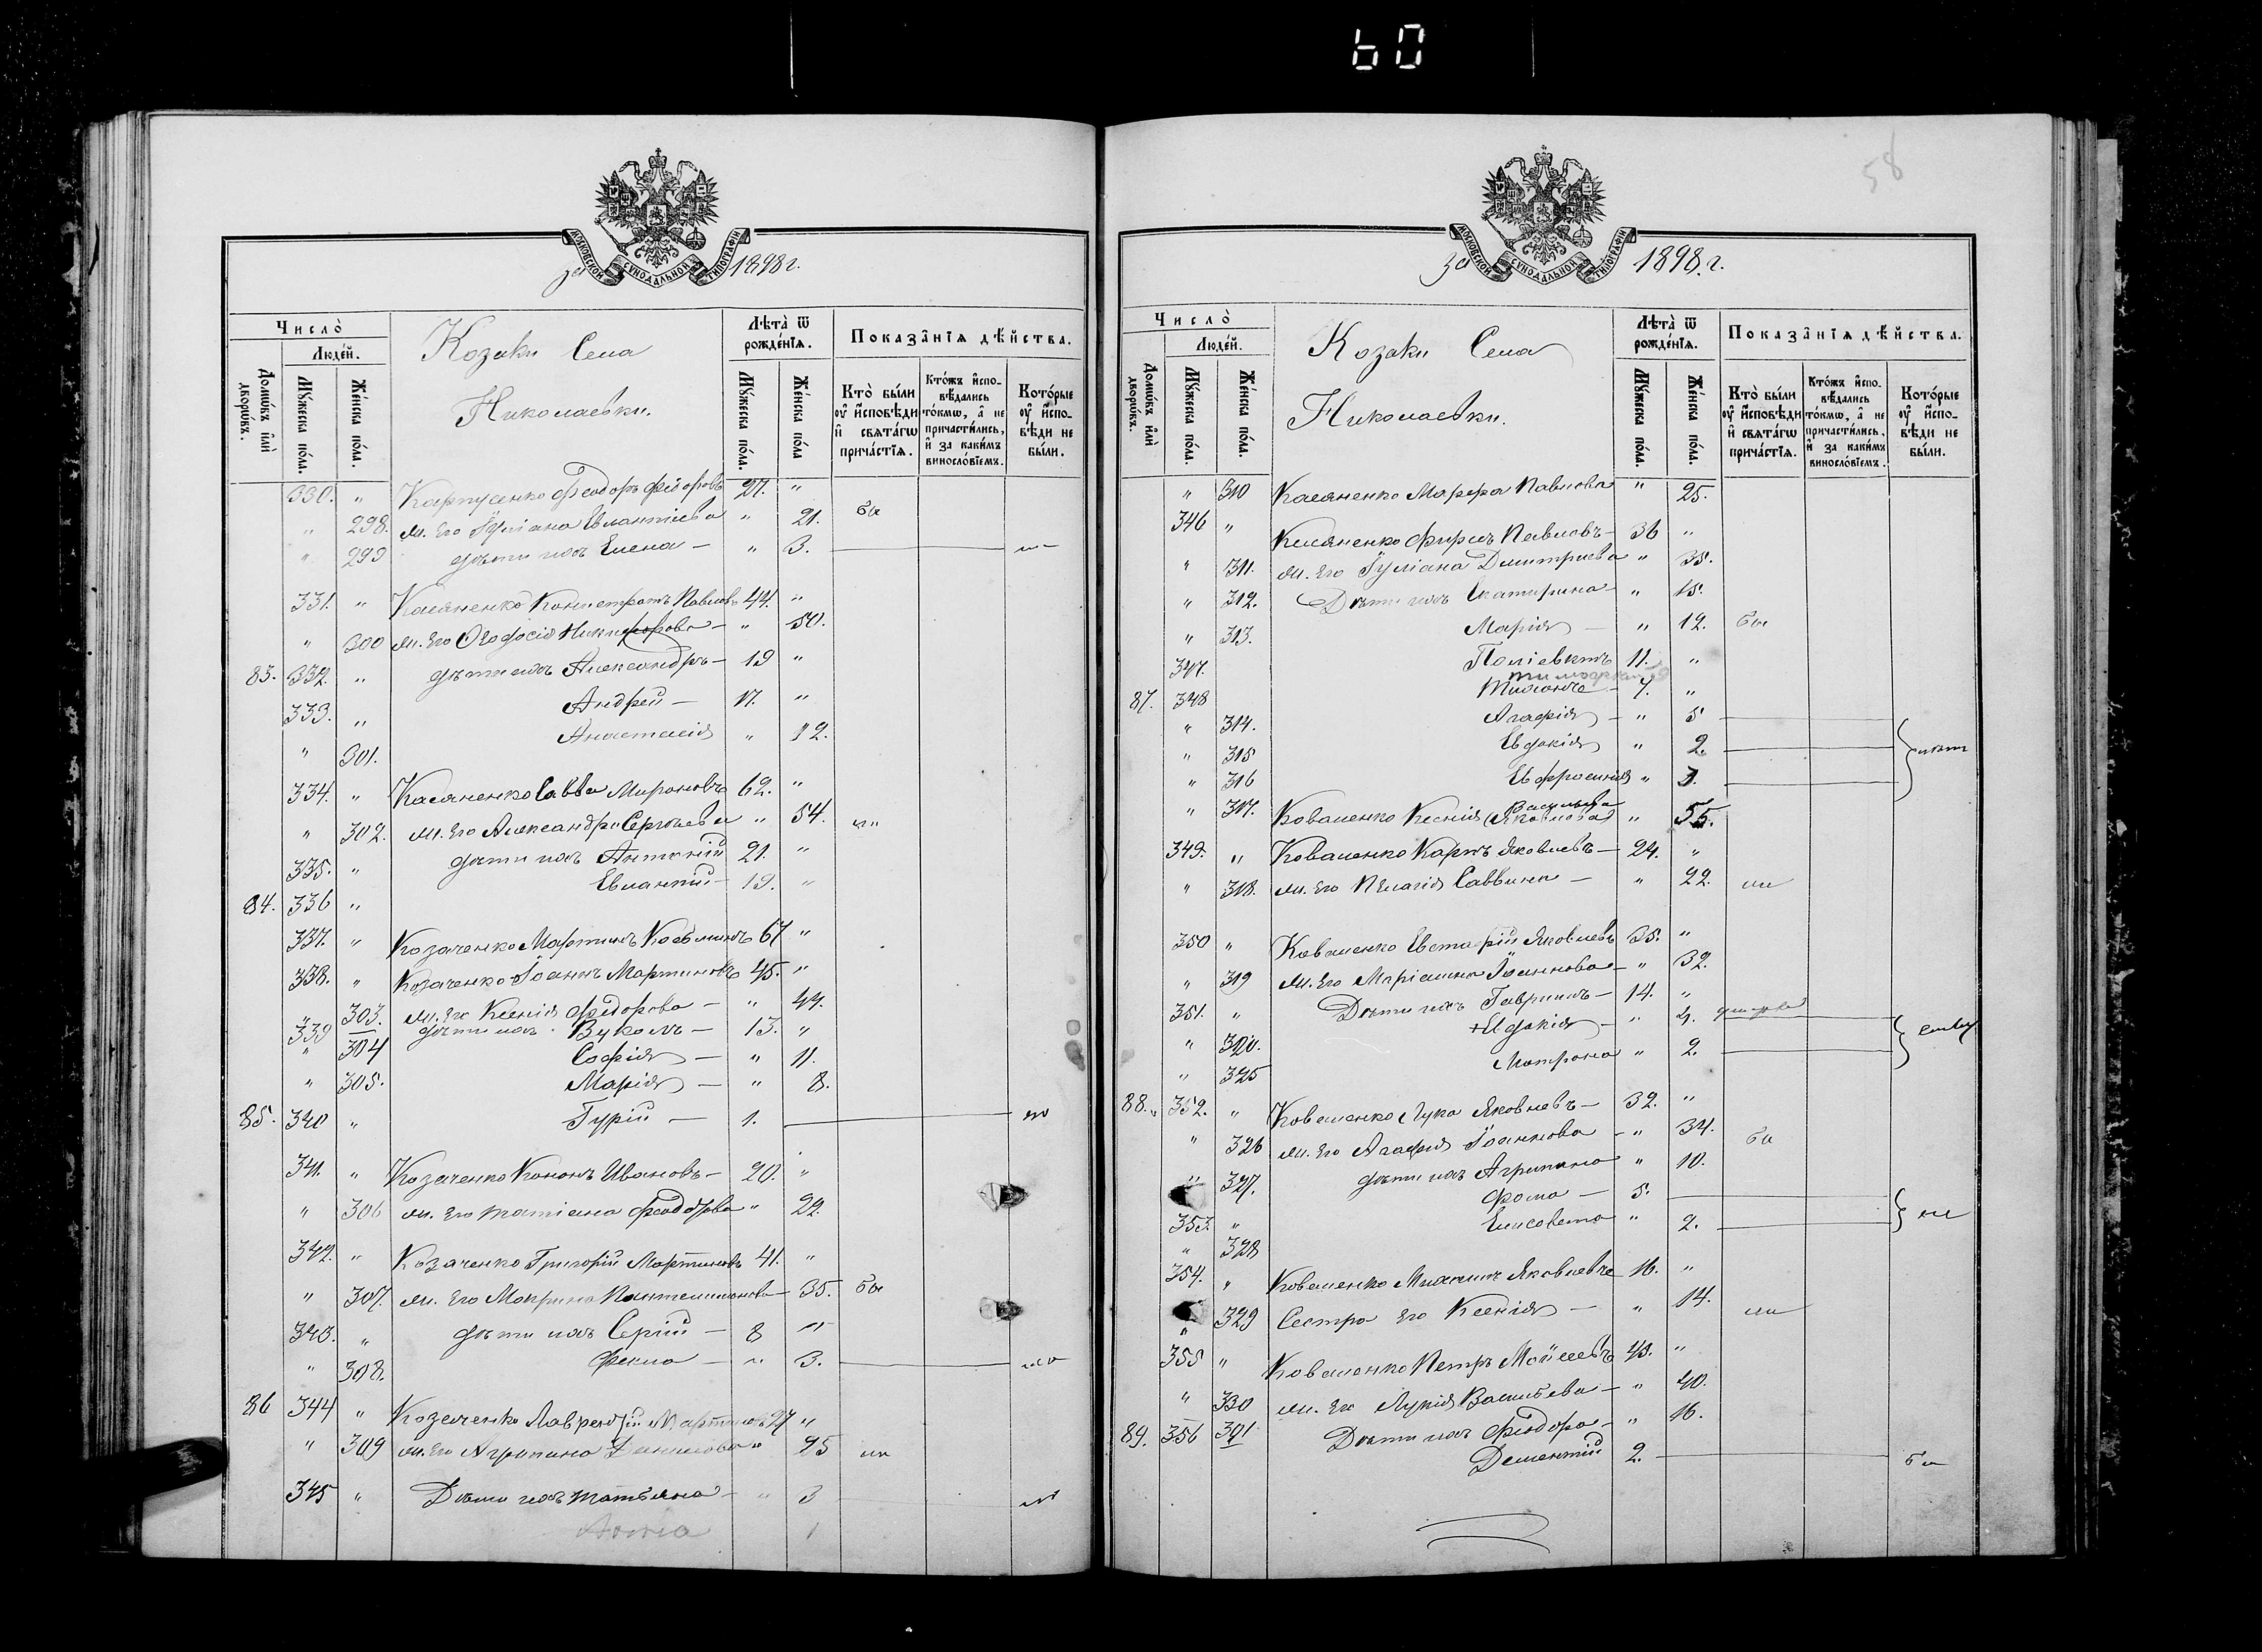 60
за 1898 г.
МОСКОВСКОЙ СѴНОДАЛЬНОЙ ТИПОГРАФІИ
Число̀
Людей.
Домѡвъ и҆лѝ дворѡвъ.
Мꙋжеска по́ла.
Же́нска по́ла.
Козаки Села
Николаевки.
Лѣта̀ ѿ рожде́нїѧ.
Мꙋжеска по́ла.
Же́нска по́ла
Показа̑нїѧ дѣ́йства.
Кто̀ бы́ли ᲂу҆ и҆сповѣди и҆ свѧта́гѡ прича́стїѧ.
Кто́жъ и҆спо-вѣ́дались то́кмѡ, а҆ не причасти́лись, и҆ за каки́мъ виносло́вїемъ.
Кото́рые ᲂу҆ и҆спо-вѣди не бы́ли.
330. " Карпусенко Феодоръ Фёдоровъ 27. "
" 298. ж. Его Іуліана Евлантіева " 21. бы
" 299 дѣти ихъ Елена — " 3.
331. " Касяненко Кондратъ Павловъ 44. "
" 300 ж. Его Феодосія Никифорова — " 50.
83. 332. " дѣти ихъ Александръ — 19 "
333. " Андрей — 17. "
" 301. Анастасія " 12.
334. " Касяненко Савва Мироновъ 62. "
" 302. ж. Его Александра Сергіева " 54.
335. " дѣти ихъ Антоній 21. "
84. 336 " Евлантій — 19. "
337. " Козаченко Мартинъ Косьминъ 67 "
338. " Козаченко Іоаннъ Мартиновъ 45. "
" 303. ж. Его Ксенія Фёдорова — " 44.
339 дѣти ихъ Вуколъ — 13. "
" 304 Софія — " 11.
" 305. Марія — " 8.
85. 340 " Гурій — 1.
341. " Козаченко Кононъ Ивановъ — 20. "
" 306 ж. Его Татіана Феодорова " 22.
342. " Козаченко Григорій Мартиновъ 41. "
" 307. ж. Его Макрина Пантелимонова — 35. бы
343. " дѣти ихъ Сергій — 8 "
" 308. Фекла — " 3.
86 344 " Козаченко Лаврентій Мартиновъ 27 "
" 309 ж. Его Агрипина Данилова " 25
345 " Дѣти ихъ Татьяна — " 3
Анна 1
58
за 1898. г.
МОСКОВСКОЙ СѴНОДАЛЬНОЙ ТИПОГРАФІИ
Число̀
Людей.
Домѡвъ и҆лѝ дворѡвъ.
Мꙋжеска по́ла.
Же́нска по́ла.
Козаки Села
Николаевки.
Лѣта̀ ѿ рожде́нїѧ.
Мꙋжеска по́ла.
Же́нска по́ла.
Показа̑нїѧ дѣ́йства.
Кто̀ бы́ли ᲂу҆ и҆сповѣди и҆ свѧта́гѡ прича́стїѧ.
Кто́жъ и҆спо-вѣ́дались то́кмѡ, а҆ не причасти́лись, и҆ за каки́мъ виносло́вїемъ.
Кото́рые ᲂу҆ и҆спо-вѣди не бы́ли.
" 310 Касяненко Марфа Павлова " 25.
346 " Касяненко Фирсъ Павловъ — 36 "
" 311. ж. Его Іуліана Димитриева " 35.
" 312. Дѣти ихъ Екатирина — " 15.
" 313. Марія — " 12. бы
347. Поліевктъ 11. "
87. 348 7. "
" 314. Агафія — " 5
" 315 Евдокія " 2.
" 316 Евфросинія " 1.
" 317. Коваленко Ксенія Яковлева Васильева " 55.
349. " Коваленко Карпъ Яковлевъ — 24. "
" 318. ж. Его Пелагія Саввина — " 22.
350 " Коваленко Евстафій Яковлевъ 35. "
" 319 ж. Его Маріамна Іоаннова — " 32.
351. " Дѣти ихъ Гавріилъ — 14. "
" 320. — " 4.
" 325 Матрона " 2.
88. 352. " Коваленко Лука Яковлевъ — 32. "
" 326 ж. Его Агафія Іоаннова — " 34. бы
" 327. дѣти ихъ Агрипина " 10.
353. " Фома — 5.
" 328 Елисавета " 2.
354. " Коваленко Яковлевъ 16. "
" 329 Сестра Его Ксенія — " 14.
355 " Коваленко Петръ Моѵсеевъ 43. "
" 330 ж. Его Лукія Васильева — " 40.
89. 356 Дѣти ихъ Феодора — " 16.
Дементій 2.